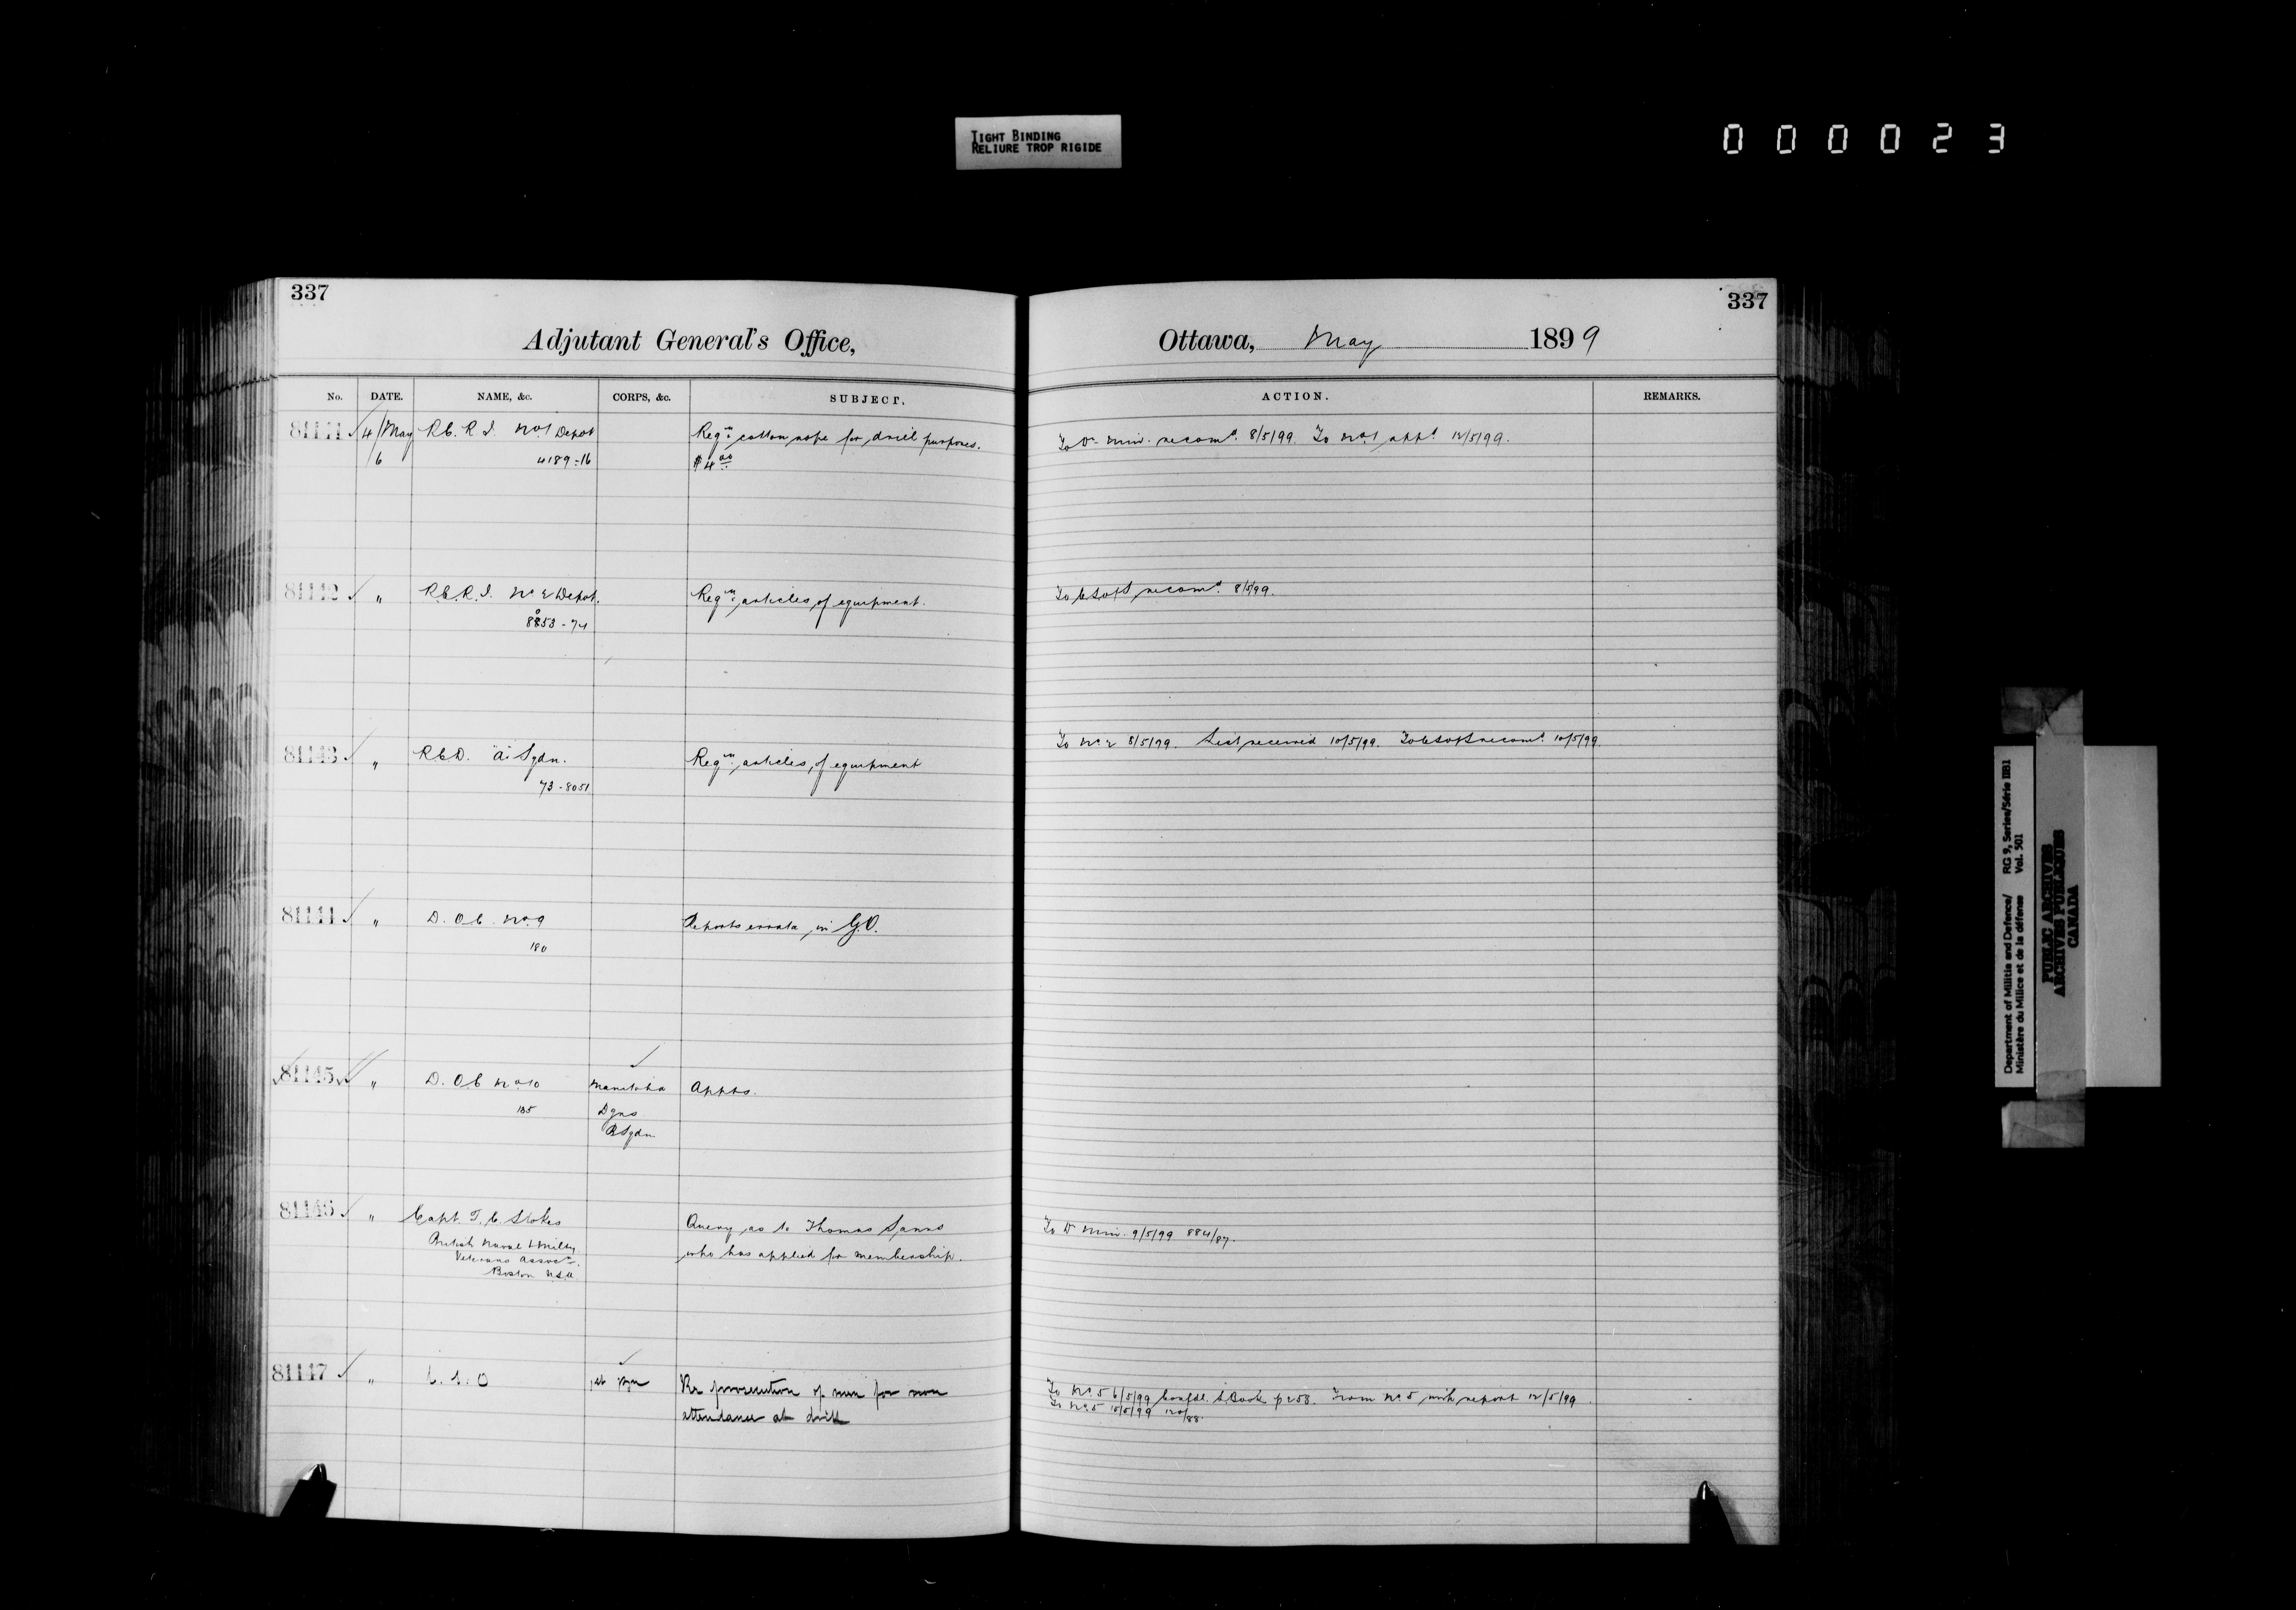 TIGHT BINDING
RELIURE TROP RIGIDE
000023
337
337
Adjutant General's Office,
Ottawa, May 1899
No. DATE. NAME, &c. CORPS, &c. SUBJECT. ACTION. REMARKS.
81141 4/May R.C.R.I. No 1 Depot Reqn. cotton rope for drill purposes. To D. Min. recomd. 8/5/99. To No 1 appd. 12/5/99.
6 4189-16 $4.00
81142 " R.C.R.I. No 2 Depot. Reqn. articles of equipment. To C S of S recomd. 8/5/99.
8853-74
To No 2 8/5/99. List received 10/5/99. To C S of S recomd. 10/5/99.
81143 " R.C.D. "A" Sqdn. Reqn. articles of equipment
73-8051
81144 " D.O.C. No 9 Reports errata in G.O.
180
81145 " D.O.C. No 10 Manitoba Appts.
135 Dgns
B Sqdn
81146 " Capt. T. C. Stokes Query as to Thomas who has applied for membership. To D Min. 9/5/99 884/87.
British Naval & Milty
Veterans Assocn.
Boston U.S.A.
81147 " C.S.O Re prosecution of men for non To No 5 6/5/99 Confdl. L Book p 253. From No 5 with report 12/5/99
attendance at drill To No 5 15/5/99 120/88.
Department of Militia and Defence/ RG 9, Series/Série IIB1
Ministère du Milice et de la défense Vol. 501
PUBLIC ARCHIVES
ARCHIVES PUBLIQUES
CANADA